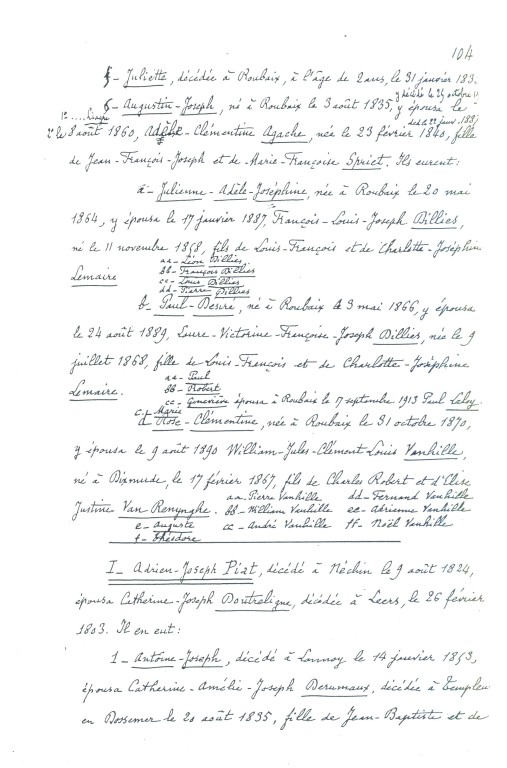 104
5- Juliette, décédée à Roubaix, à l'âge de 2 ans, le 31 janvier 183.
y décédé le 25 octobre
6- Augustin-Joseph, né à Roubaix le 3 août 1835, y épousa le
1°
2° le 8 août 1860, Adèle-Clémentine Agache, née le 23 février 1840, fille
de Jean-François-Joseph et de Marie-Françoise Spriet. Ils eurent:
a- Julienne-Adèle-Joséphine, née à Roubaix le 20 mai
1864, y épousa le 17 janvier 1887, François-Louis-Joseph Dillies,
né le 11 novembre 1858, fils de Louis-François et de Charlotte-Joséphine
Lemaire
aa- Léon Dillies
bb- François Dillies
cc- Louis Dillies
dd- Pierre Dillies
b- Paul-Desiré, né à Roubaix le 3 mai 1866, y épousa
le 24 août 1889, Laure-Victorine-Françoise-Joseph Dillies, née le 9
juillet 1868, fille de Louis-François et de Charlotte-Joséphine
Lemaire.
aa- Paul
bb- Robert
cc- Geneviève épousa à Roubaix le 17 septembre 1913 Paul Leloy
c- Marie
d Rose-Clémentine, née à Roubaix le 31 octobre 1870,
y épousa le 9 août 1890 William-Jules-Clément Louis Vanhille,
né à Dixmude, le 17 février 1867, fils de Charles Robert et d'Elise
Justine Van-Renynghe.
aa- Pierre Vanhille
bb- William Vanhille
cc- André Vanhille
dd- Fernand Vanhille
ee- Adrienne Vanhille
ff- Noël Vanhille
e- Auguste
f- Théodore
I- Adrien-Joseph Piat, décédé à Néchin le 9 août 1824,
épousa Catherine-Joseph Doutreligne, décédée à Leers, le 26 février
1803. Il en eut:
1- Antoine-Joseph, décédé à Lannoy le 14 janvier 1853,
épousa Catherine-Amélie-Joseph Derumaux, décédée à Templeu
en Dossemer le 20 août 1835, fille de Jean-Baptiste et de